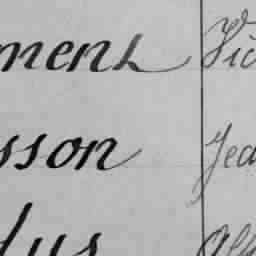 ment Vic
sson Jea
dus Alp